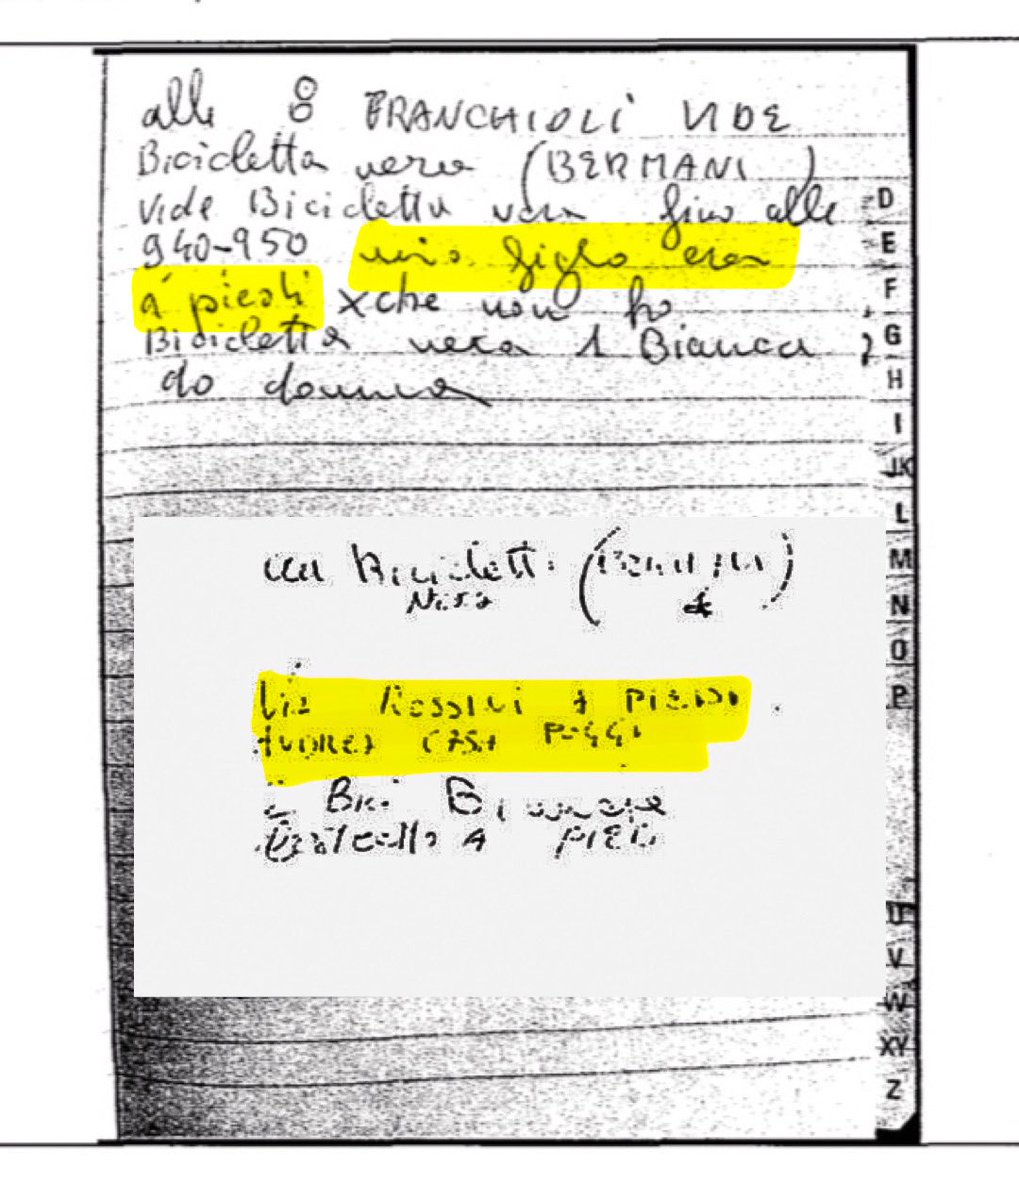 alle 8 FRANCHIOLI VIDE
Bicicletta nera (BERMANI)
Vide Bicicletta nera fino alle
940-950 mio figlio era
a piedi xche non ho
Bicicletta nera 1 Bianca
do donna
D
E
F
G
H
I
JK
L
M
N
O
P
U
V
W
XY
Z
Biciclett
Nera
Via Rossini A
CASA POGGI
Bici
A PIEDI